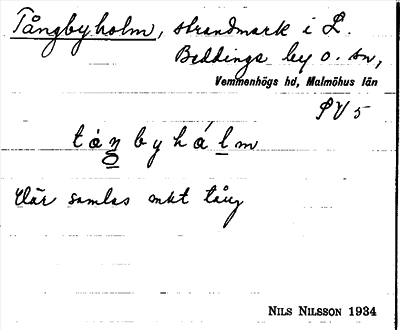 Tångbyholm, strandmark i L.
Beddinge by o. sn,
Vemmenhögs hd, Malmöhus län
SV 5
tåŋbyhálm
Där samlas mkt tång
NILS NILSSON 1934